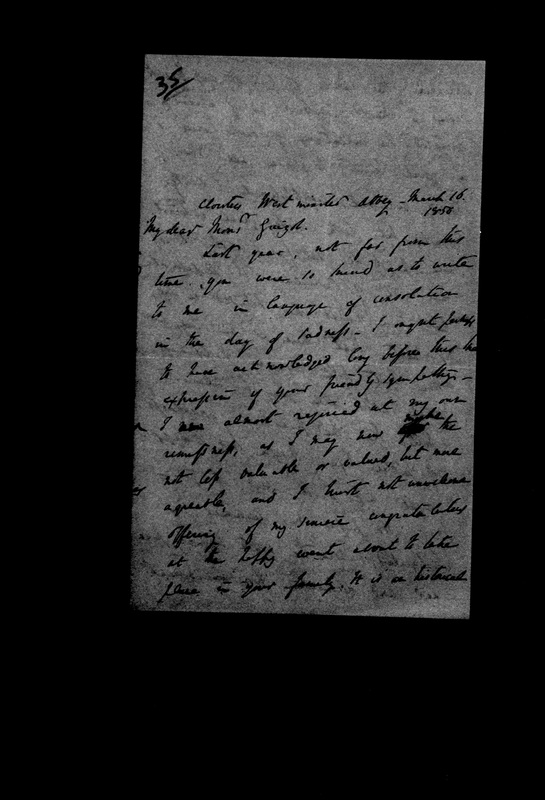 35
Cloisters Westminster Abbey - March 16.
1850
My dear Monsr Guizot.
Last year, not far from this
time, you were so kind as to write
to me in language of consolation
in the day of sadness - I ought perhaps
to have acknowledged long before this the
expression of your friendly sympathy -
I am almost rejoiced at my own
remissness, as I may now make the
not less valuable or valued, but more
agreeable, and I trust not unwelcome
offering of my sincere congratulations
at the happy event about to take
place in your family. It is an historical